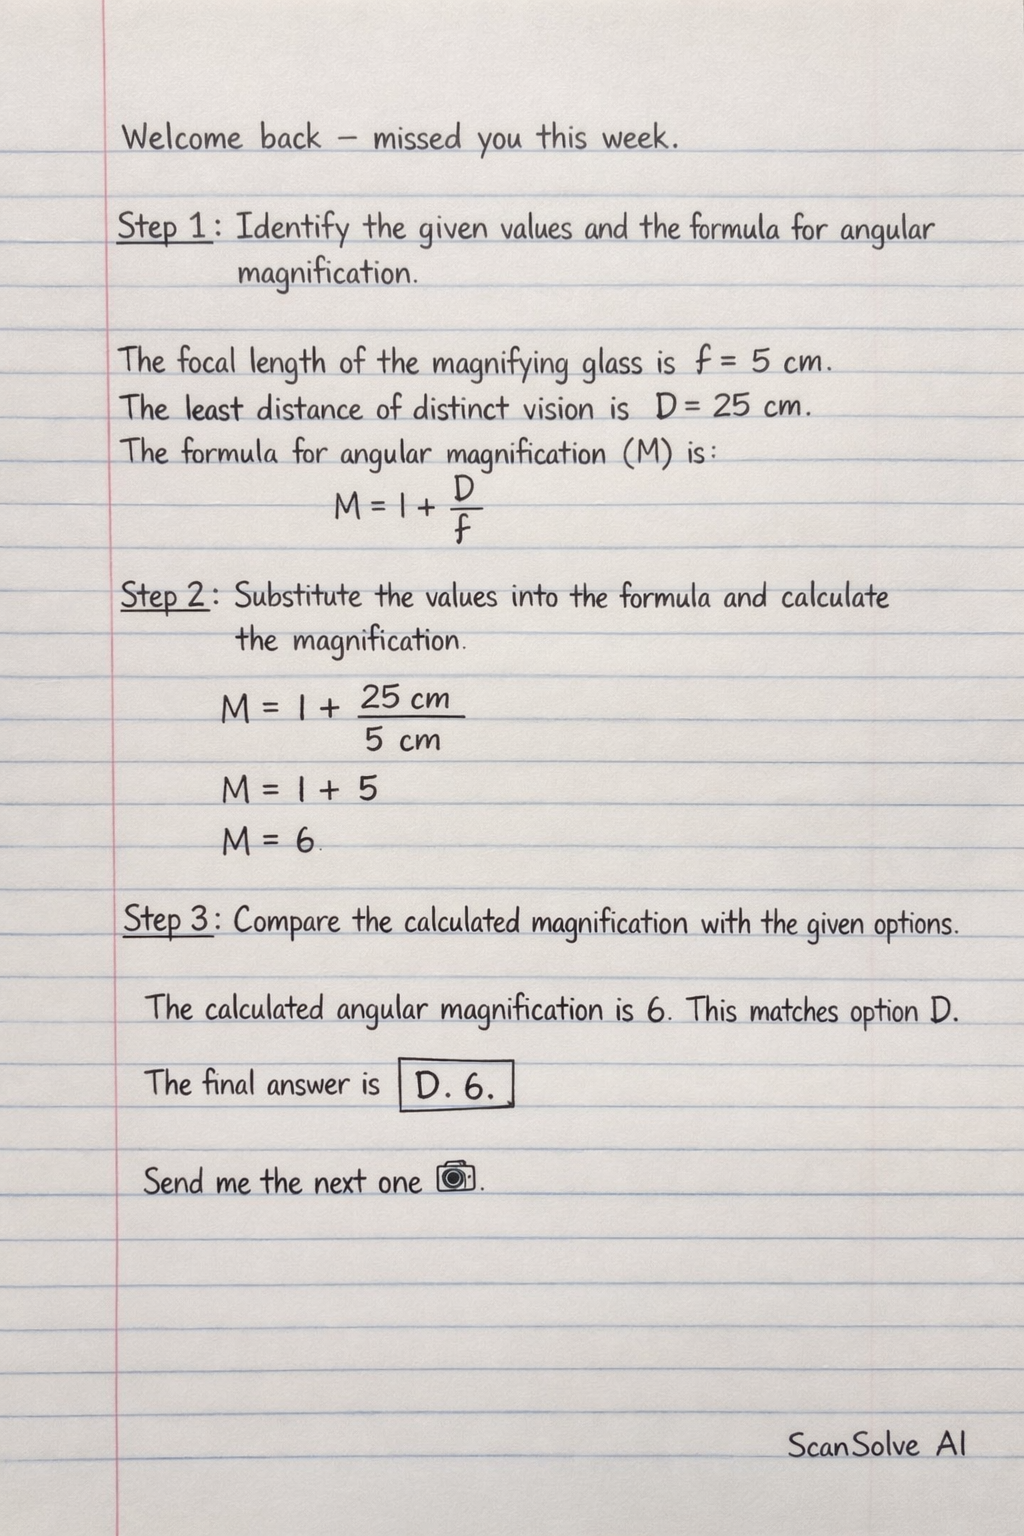 Welcome back – missed you this week.
Step 1: Identify the given values and the formula for angular
magnification.
The focal length of the magnifying glass is f = 5 cm.
The least distance of distinct vision is D = 25 cm.
The formula for angular magnification (M) is:
M = 1 + D/f
Step 2: Substitute the values into the formula and calculate
the magnification.
M = 1 + 25 cm/5 cm
M = 1 + 5
M = 6.
Step 3: Compare the calculated magnification with the given options.
The calculated angular magnification is 6. This matches option D.
The final answer is D. 6.
Send me the next one 📷.
ScanSolve AI